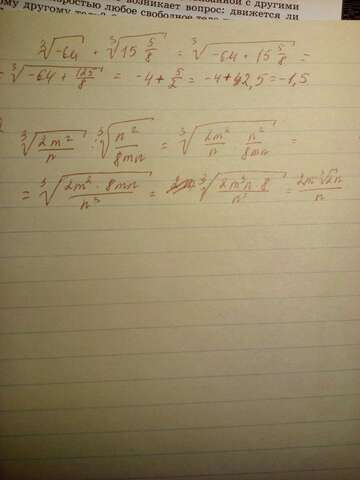 возникает вопрос: движется ли
любое свободное тело
∛-64 + ∛15 5/8 = ∛-64 + 15 5/8 =
= ∛-64 + 125/8 = -4 + 5/2 = -4 + 2,5 = -1,5
∛2m²/n : ∛n²/8mn = ∛2m²/n · n²/8mn =
= ∛2m² · 8mn/n³ = ∛2m³n · 8/n³ = 2m∛2n/n